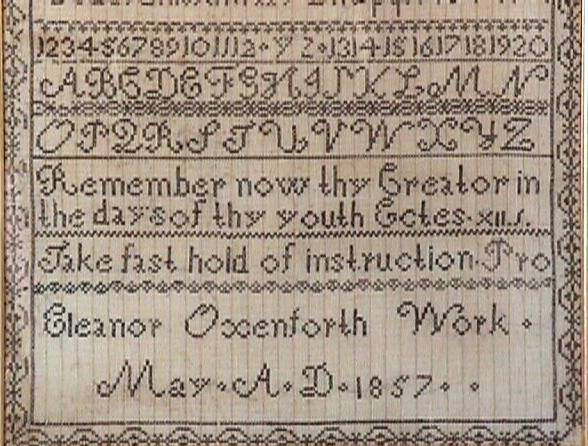 123456789101112 y z 1314151617181920
ABCDEFGHIJKLMN
OPQRSTUVWXYZ
Remember now thy Creator in
the days of thy youth Ecles. xii.1.
Take fast hold of instruction. Pro
Eleanor Oxenforth Work
May A D 1857